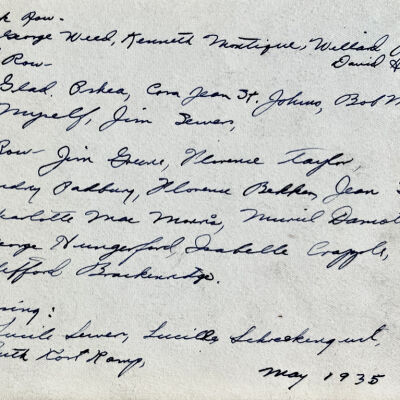 k Row-
George Weed, Kenneth Montique, Willard
David H
Row-
Glad. Rshea, Cora Jean St. Johns, Bob M
Myself, Jim Sewer,
Row- Jim Greene, Florence Taylor,
Padbury, Florence Bekken, Jean
Charlotte Mae Morris, Muriel
George Hungerford, Isabelle Crapple,
Clifford Brackenridge.
Lucile Sewer, Lucille
Ruth Kort Kamp,
May 1935